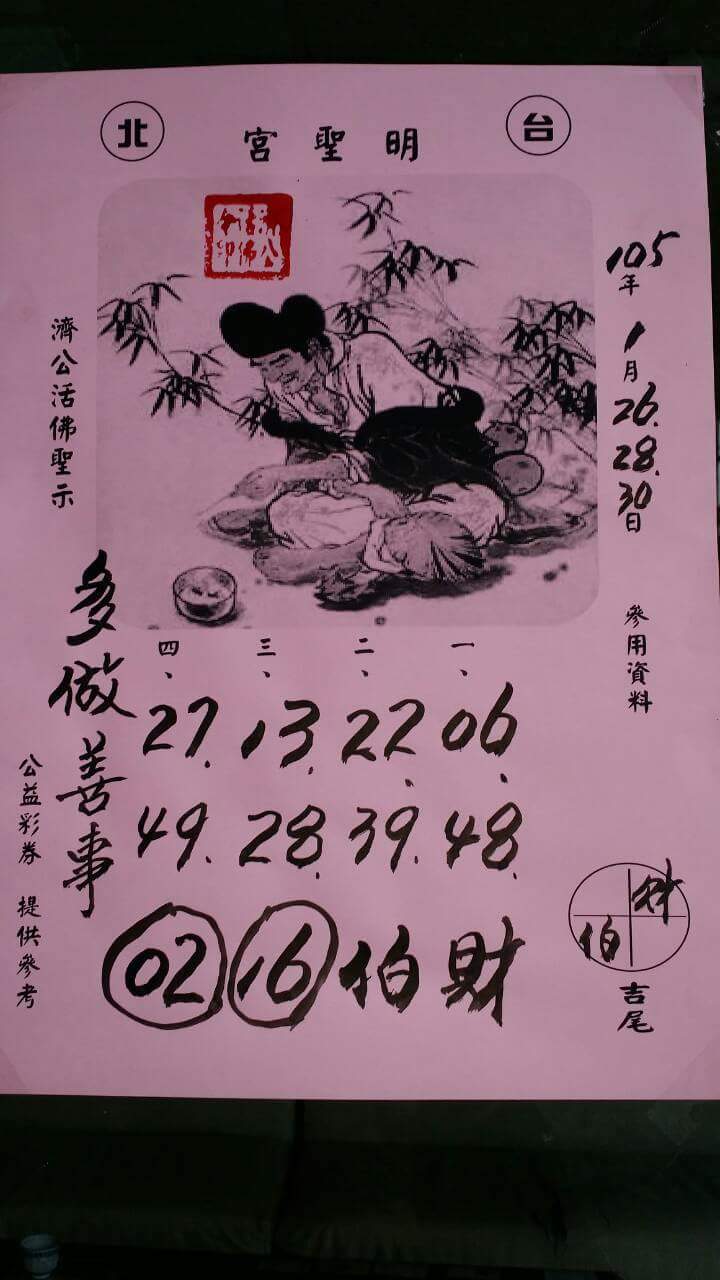 台北
明聖宮
105年1月26.28.30日
參用資料
財
伯
吉尾
一、06、48、
二、22、39、
三、13、28、
四、27、49、
財伯 16 02
濟公活佛聖示
多做善事
公益彩券 提供參考